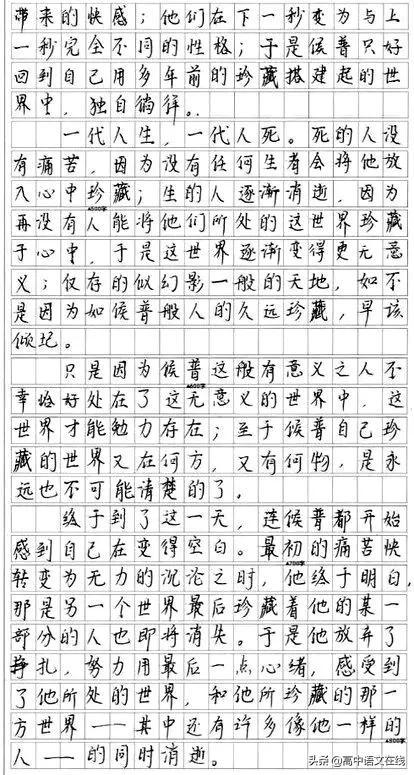 带来的快感；他们在下一秒变为与上
一秒完全不同的性格；于是候普只好
回到自己用多年前的珍藏搭建起的世
界中，独自徜徉。
一代人生，一代人死。死的人没
有痛苦，因为没有任何生者会将他放
入心中珍藏；生的人逐渐消逝，因为
▲500字
再没有人能将他们所处的这世界珍藏
于心中，于是这世界逐渐变得更无意
义；仅存的似幻影一般的天地，如不
是因为如候普般人的久远珍藏，早该
倾圮。
只是因为候普这般有意义之人不
▲600字
幸恰好处在了这无意义的世界中，这
世界才能勉力存在；至于候普自己珍
藏的世界又在何方，又有何物，是永
远也不可能清楚的了。
终于到了这一天，连候普都开始
感到自己在变得空白。最初的痛苦快
▲700字
转变为无力的沉沦之时，他终于明白，
那是另一个世界最后珍藏着他的某一
部分的人也即将消失。于是他放弃了
挣扎，努力用最后一点心绪，感受到
了他所处的世界，和他所珍藏的那一
方世界——其中还有许多像他一样的
▲800字
人——的同时消逝。
头条@高中语文在线